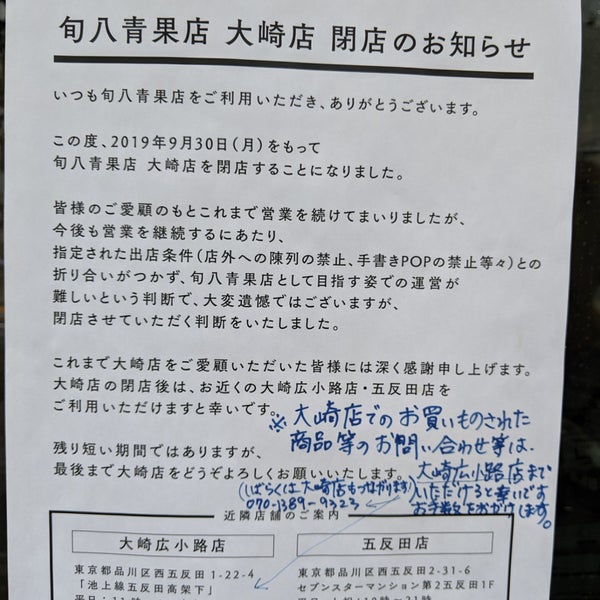 旬八青果店 大崎店 閉店のお知らせ
いつも旬八青果店をご利用いただき、ありがとうございます。
この度、2019年9月30日(月)をもって
旬八青果店 大崎店を閉店することになりました。
皆様のご愛顧のもとこれまで営業を続けてまいりましたが、
今後も営業を継続するにあたり、
指定された出店条件(店外への陳列の禁止、手書きPOPの禁止等々)との
折り合いがつかず、旬八青果店として目指す姿での運営が
難しいという判断で、大変遺憾ではございますが、
閉店させていただく判断をいたしました。
これまで大崎店をご愛顧いただいた皆様には深く感謝申し上げます。
大崎店の閉店後は、お近くの大崎広小路店・五反田店を
ご利用いただけますと幸いです。
※大崎店でのお買いものされた
商品等のお問い合わせ等は、
大崎広小路店まで
いただけると幸いです
お手数をおかけします。
残り短い期間ではありますが、
最後まで大崎店をどうぞよろしくお願いいたします。
(しばらくは大崎店もつながります)
070-1389-9323
近隣店舗のご案内
大崎広小路店
東京都品川区西五反田1-22-4
「池上線五反田高架下」
五反田店
東京都品川区西五反田2-31-6
セブンスターマンション第2五反田1F